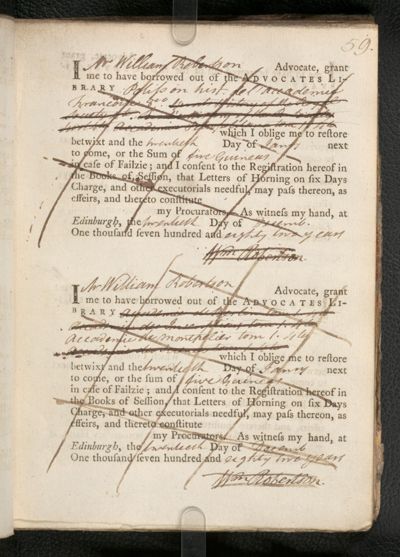 59.
I Mr William Robertson Advocate, grant
me to have borrowed out of the ADVOCATES LI-
BRARY hist de l'academie
which I oblige me to restore
betwixt and the twentieth Day of Jany next
to come, or the Sum of five Guineas
in case of Failzie; and I consent to the Registration hereof in
the Books of Session, that Letters of Horning on six Days
Charge, and other executorials needful, may pass thereon, as
effeirs, and thereto constitute
my Procurators. As witness my hand, at
Edinburgh, the twentieth Day of Decemb.
One thousand seven hundred and eighty two years
Wm. Robertson
I Mr William Robertson Advocate, grant
me to have borrowed out of the ADVOCATES LI-
BRARY
Academie tom 1.
which I oblige me to restore
betwixt and the twentieth Day of Jany next
to come, or the sum of five Guineas
in case of Failzie; and I consent to the Registration hereof in
the Books of Session, that Letters of Horning on six Days
Charge, and other executorials needful, may pass thereon, as
effeirs, and thereto constitute
my Procurators. As witness my hand, at
Edinburgh, the twentieth Day of Decemb
One thousand seven hundred and eighty two years
Wm. Robertson.